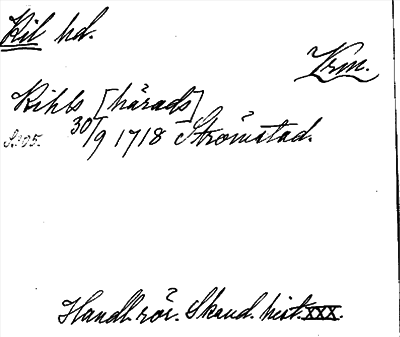 Kil hd.
Vrm.
Kihls [härads]
S. 05. 30/9 1718 Strömstad.
Handl. rör. Skand. hist. XXX.